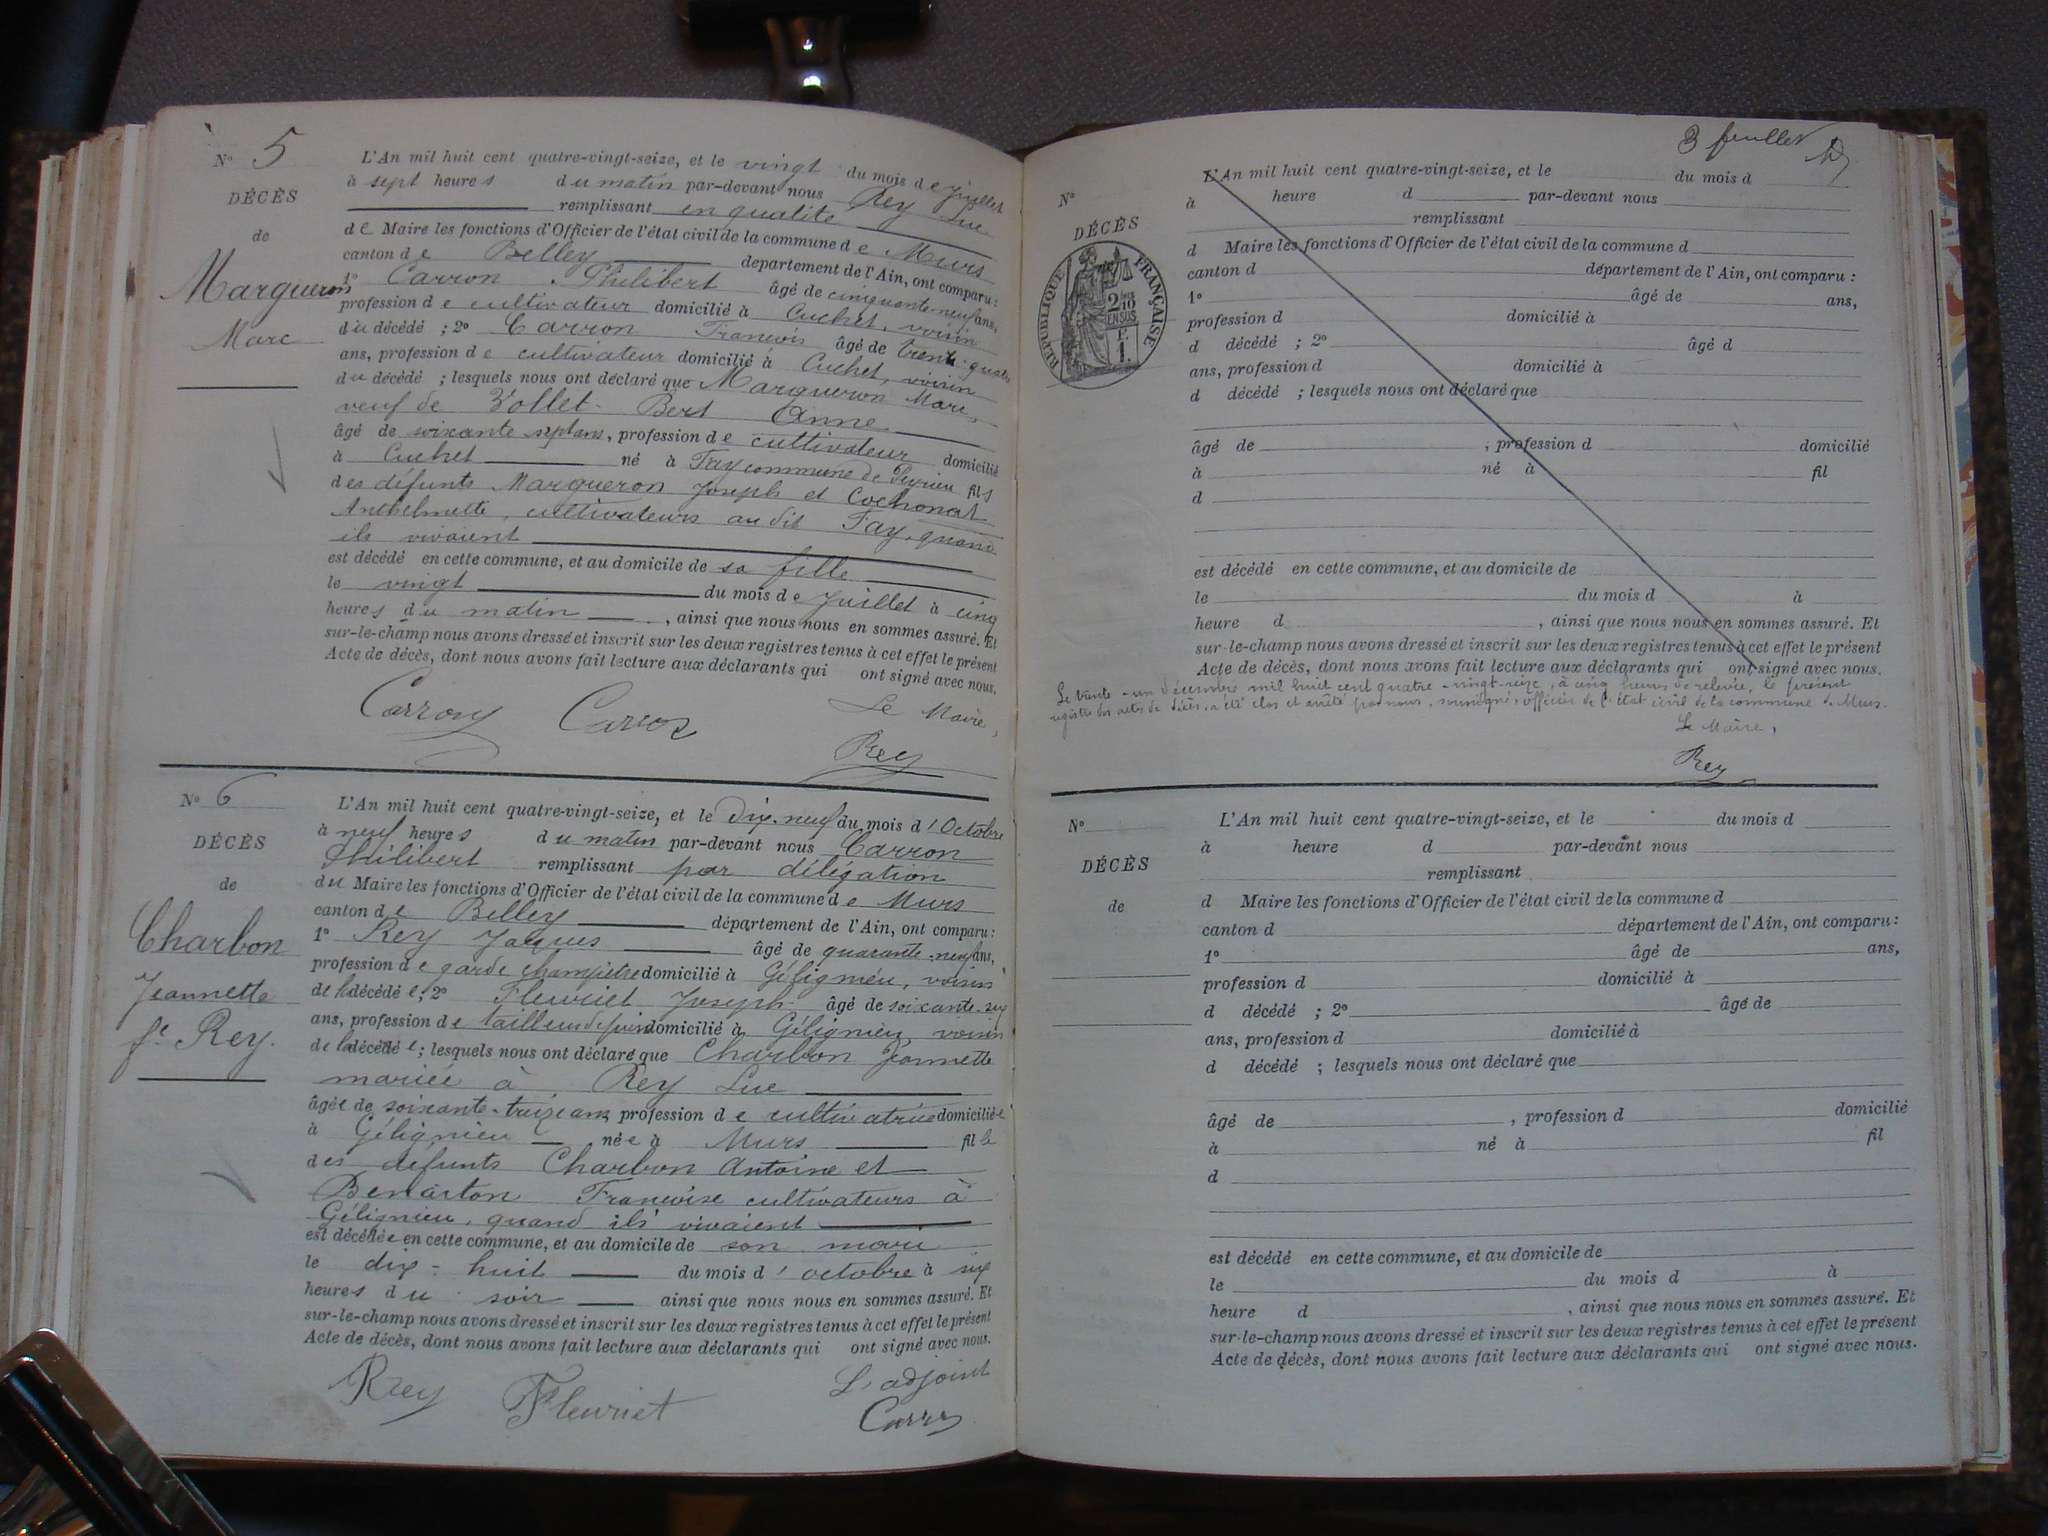 N° 5
DÉCÈS
de
Margueron
Marc
L'An mil huit cent quatre-vingt-seize, et le vingt du mois de Juillet
à sept heures du matin par-devant nous Rey Luc
remplissant en qualité
de Maire les fonctions d'Officier de l'état civil de la commune de Murs
canton de Belley département de l'Ain, ont comparu :
1° Carron Philibert âgé de cinquante-neuf ans,
profession de cultivateur domicilié à Cuchet, voisin
du décédé ; 2° Carron Francois âgé de trente-quatre
ans, profession de cultivateur domicilié à Cuchet, voisin
du décédé ; lesquels nous ont déclaré que Margueron Marc,
veuf de Vollet-Bert Anne
âgé de soixante sept ans, profession de cultivateur domicilié
à Cuchet né à Fay commune de Peyrieu fils
des défunts Margueron Joseph et Cochonat
Anthelmette, cultivateurs au dit Fay, quand
ils vivaient
est décédé en cette commune, et au domicile de sa fille
le vingt du mois de Juillet à cinq
heures du matin, ainsi que nous nous en sommes assuré. Et
sur-le-champ nous avons dressé et inscrit sur les deux registres tenus à cet effet le présent
Acte de décès, dont nous avons fait lecture aux déclarants qui ont signé avec nous.
Carron Carron Le Maire,
Rey
N° 6
DÉCÈS
de
Charbon
Jeannette
fe Rey.
L'An mil huit cent quatre-vingt-seize, et le Dix-neuf du mois d'Octobre
à neuf heures du matin par-devant nous Carron
Philibert remplissant par délégation
du Maire les fonctions d'Officier de l'état civil de la commune de Murs
canton de Belley département de l'Ain, ont comparu :
1° Rey Jacques âgé de quarante-neuf ans,
profession de garde champêtre domicilié à Gélignieu, voisin
de la décédée ; 2° Fleuriet Joseph âgé de soixante-six
ans, profession de tailleur de pierre domicilié à Gélignieu, voisin
de la décédée ; lesquels nous ont déclaré que Charbon Jeannette
mariée à Rey Luc
âgée de soixante-treize ans profession de cultivatrice domiciliée
à Gélignieu née à Murs fille
des défunts Charbon Antoine et
Benaiton Francoise cultivateurs à
Gélignieu, quand ils vivaient
est décédée en cette commune, et au domicile de son mari
le dix-huit du mois d'octobre à six
heures du soir ainsi que nous nous en sommes assuré. Et
sur-le-champ nous avons dressé et inscrit sur les deux registres tenus à cet effet le présent
Acte de décès, dont nous avons fait lecture aux déclarants qui ont signé avec nous.
Rey Fleuriet L'adjoint
Carron
3 feuillet
N°
DÉCÈS
RÉPUBLIQUE FRANÇAISE
2/10 EN SUS
1.
L'An mil huit cent quatre-vingt-seize, et le du mois d
à heure d par-devant nous
remplissant
d Maire les fonctions d'Officier de l'état civil de la commune d
canton d département de l'Ain, ont comparu :
1° âgé de ans,
profession d domicilié à
d décédé ; 2° âgé d
ans, profession d domicilié à
d décédé ; lesquels nous ont déclaré que
âgé de ; profession d domicilié
à né à fil
d
est décédé en cette commune, et au domicile de
le du mois d à
heure d , ainsi que nous nous en sommes assuré. Et
sur-le-champ nous avons dressé et inscrit sur les deux registres tenus à cet effet le présent
Acte de décès, dont nous avons fait lecture aux déclarants qui ont signé avec nous.
Le trente-un décembre mil huit cent quatre-vingt-seize, à cinq heures de relevée, le présent
registre des actes de décès, a été clos et arrêté par nous, soussigné, officier de l'état civil de la commune de Murs.
Le Maire,
Rey
N°
DÉCÈS
de
L'An mil huit cent quatre-vingt-seize, et le du mois d
à heure d par-devant nous
remplissant
d Maire les fonctions d'Officier de l'état civil de la commune d
canton d département de l'Ain, ont comparu :
1° âgé de ans,
profession d domicilié à
d décédé ; 2° âgé de
ans, profession d domicilié à
d décédé ; lesquels nous ont déclaré que
âgé de , profession d domicilié
à né à fil
d
est décédé en cette commune, et au domicile de
le du mois d à
heure d , ainsi que nous nous en sommes assuré. Et
sur-le-champ nous avons dressé et inscrit sur les deux registres tenus à cet effet le présent
Acte de décès, dont nous avons fait lecture aux déclarants qui ont signé avec nous.